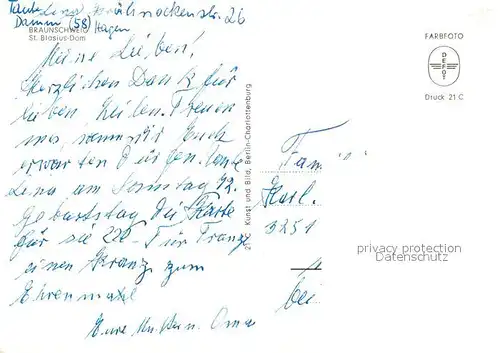 Damm (58) Hagen
BRAUNSCHWEIG
St. Blasius-Dom
Meine Lieben!
Herzlichen Dank für
lieben Zeilen. Freuen
uns, wenn wir Euch
erwarten dürfen. Tante
Lena am Sonntag 92.
Geburtstag. Die Karte
für sie Für Franz
einen Kranz zum
Ehrenmahl
Eure Oma
21 C Kunst und Bild, Berlin-Charlottenburg
FARBFOTO
DEFOT
Druck 21 C
Fam
Karl.
3251
bei
privacy protection
Datenschutz